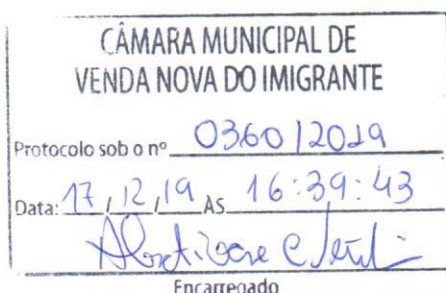 CÂMARA MUNICIPAL DE
VENDA NOVA DO IMIGRANTE
Protocolo sob o nº 0360/2019
Data: 17/12/19 ÀS 16:39:43
Encarregado